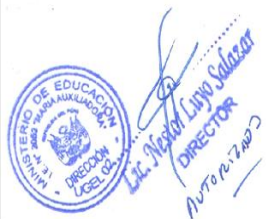 MINISTERIO DE EDUCACIÓN
"MARIA AUXILIADORA"
DIRECCIÓN
UGEL 02
Lic. Nestor Luyo Salazar
DIRECTOR
AUTORIZADO